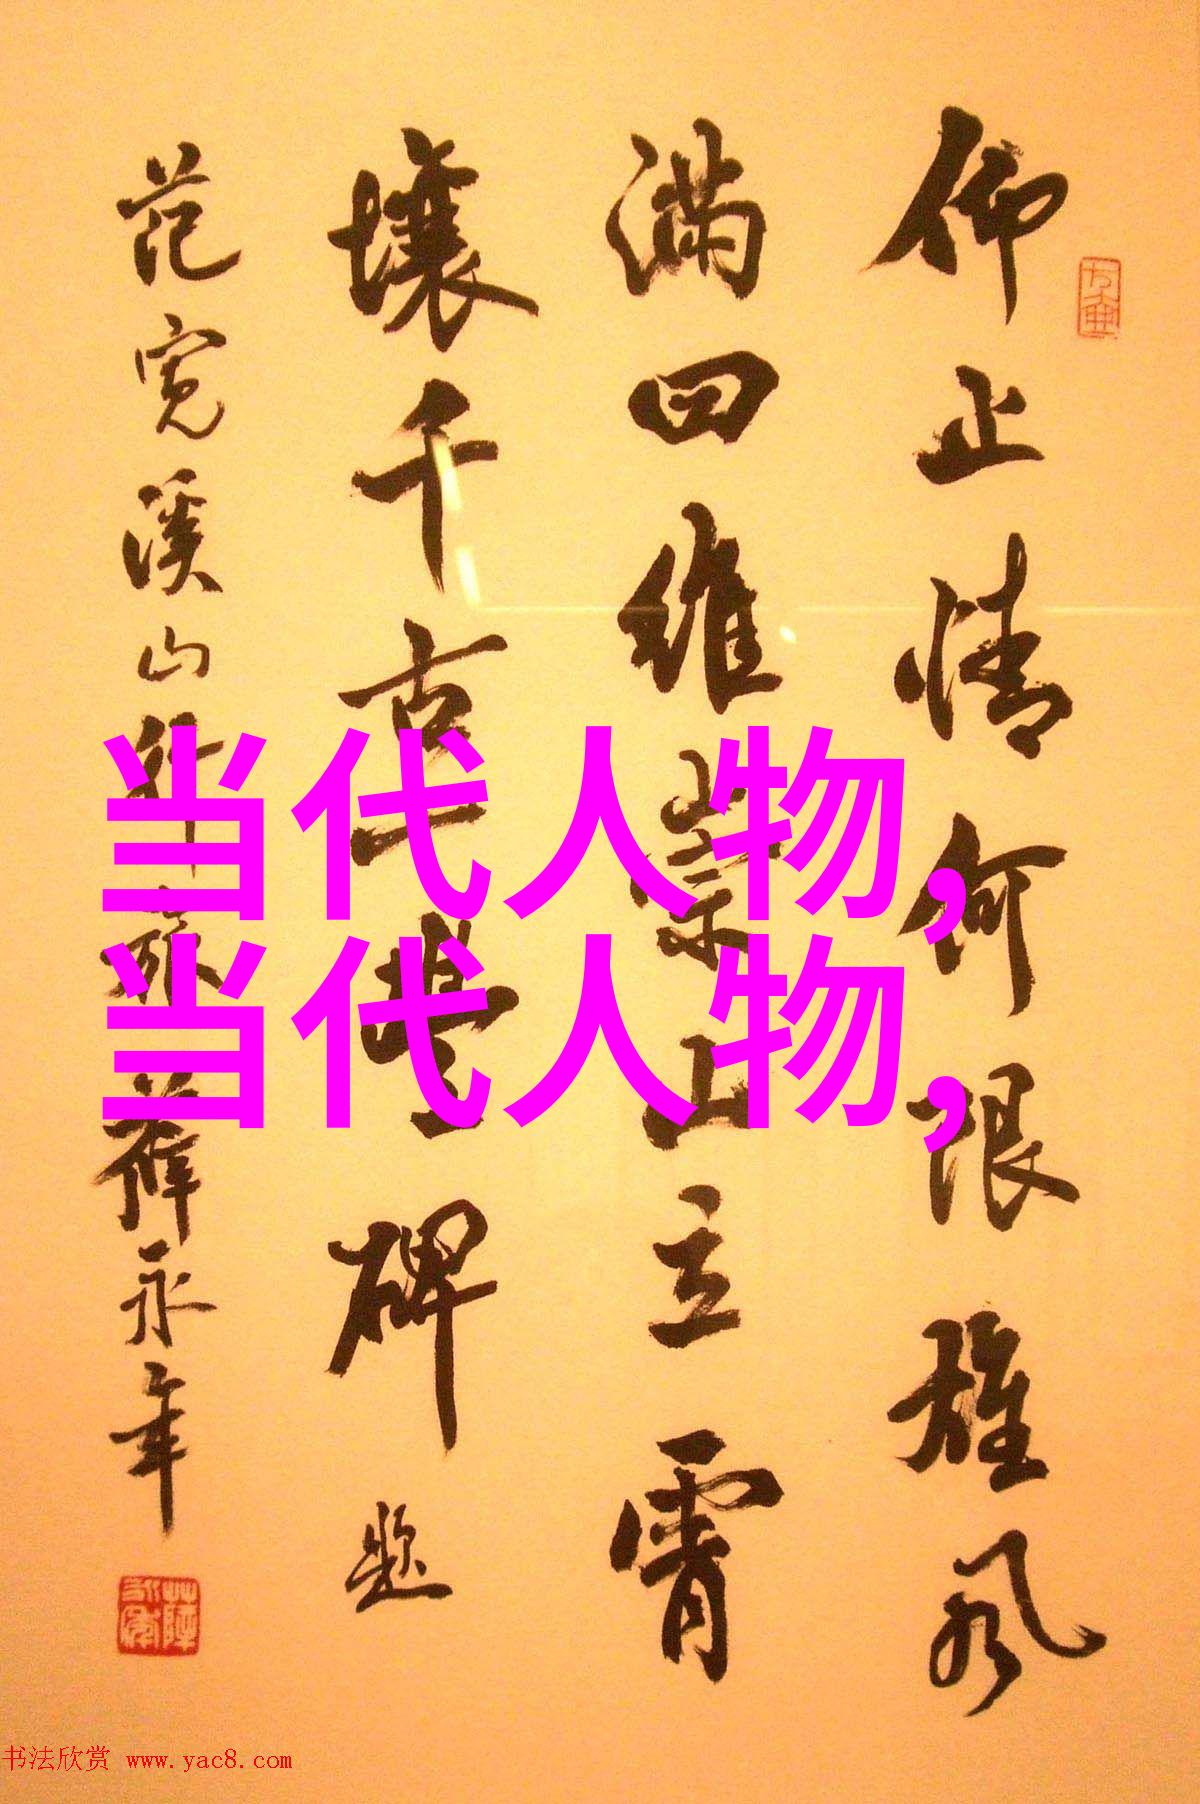 仰止情何限雄风
满四维崇山立霄
壤千古一丰碑题
范宽溪山行旅薛永年
当代人物,
当代人物,
书法欣赏 www.yac8.com